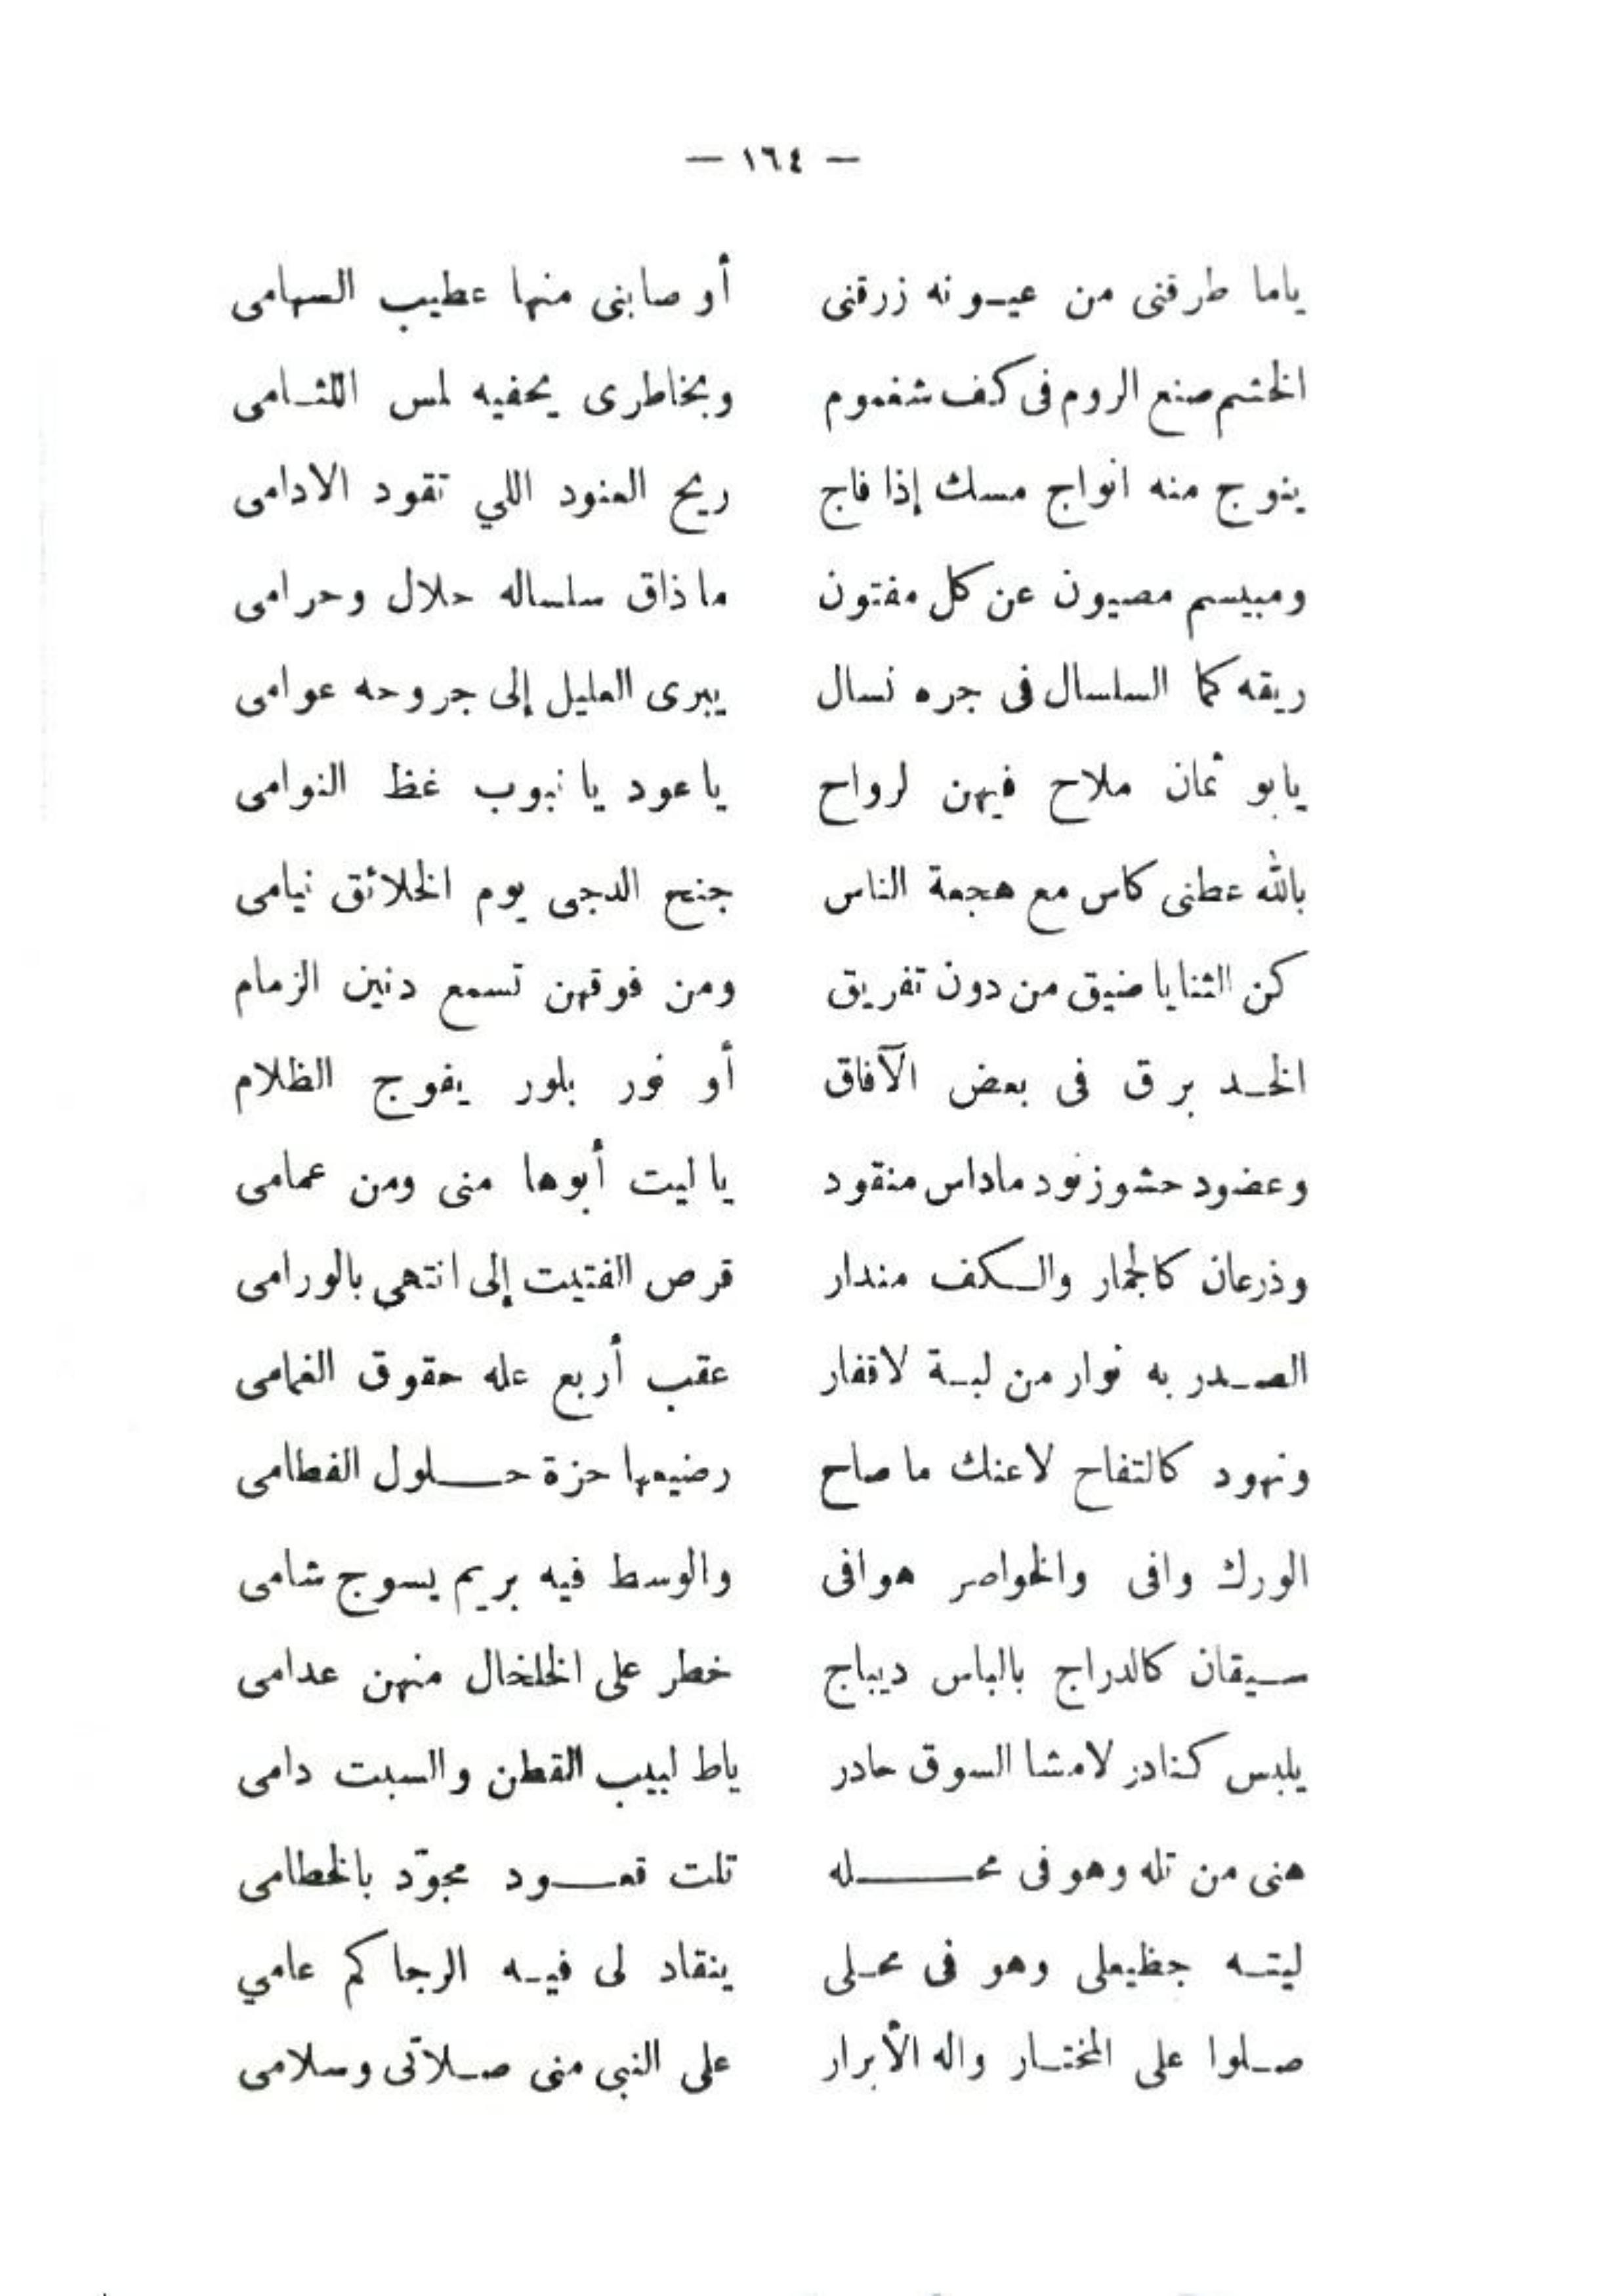 — ١٦٤ —
ياما طرقنى من عيونه زرقنى أو صابنى منها عطيب السهامى
الخشم صنع الروم فى كف شغموم وبخاطرى يحفيه لمس اللثامى
ينوج منه انواج مسك إذا فاج ريح العنود اللي تقود الادامى
ومبيسم مصيون عن كل مفتون ما ذاق سلساله حلال وحرامى
ريقه كما السلسال فى جره نسال يبرى العليل إلى جروحه عوامى
يابو ثمان ملاح فيهن لرواح يا عود يا نبوب غظ النوامى
بالله عطنى كاس مع هجعة الناس جنح الدجى يوم الخلائق نيامى
كن الثنايا ضيق من دون تفريق ومن فوقهن تسمع دنين الزمام
الخد برق فى بعض الآفاق أو نور بلور يفوج الظلام
وعضود حشو زنود ماداس منقود يا ليت أبوها منى ومن عمامى
وذرعان كالجمار والكف مندار قرص الفتيت إلى انتهى بالورامى
الصدر به نوار من لبة لاقفار عقب أربع عله حقوق الغمامى
ونهود كالتفاح لاعنك ما صاح رضيعها حزة حلول الفطامى
الورك وافى والخواصر هوافى والوسط فيه بريم يسوج شامى
سيقان كالدراج بالباس ديباج خطر على الخلخال منهن عدامى
يلبس كنادر لامشا السوق حادر ياط لبيب القطن والسبت دامى
هنى من تله وهو فى محله تلت قعود مجوّد بالخطامى
ليته جظيعلى وهو فى محلى ينقاد لى فيه الرجا كم عامي
صلوا على المختار واله الأبرار على النبى منى صلاتى وسلامى